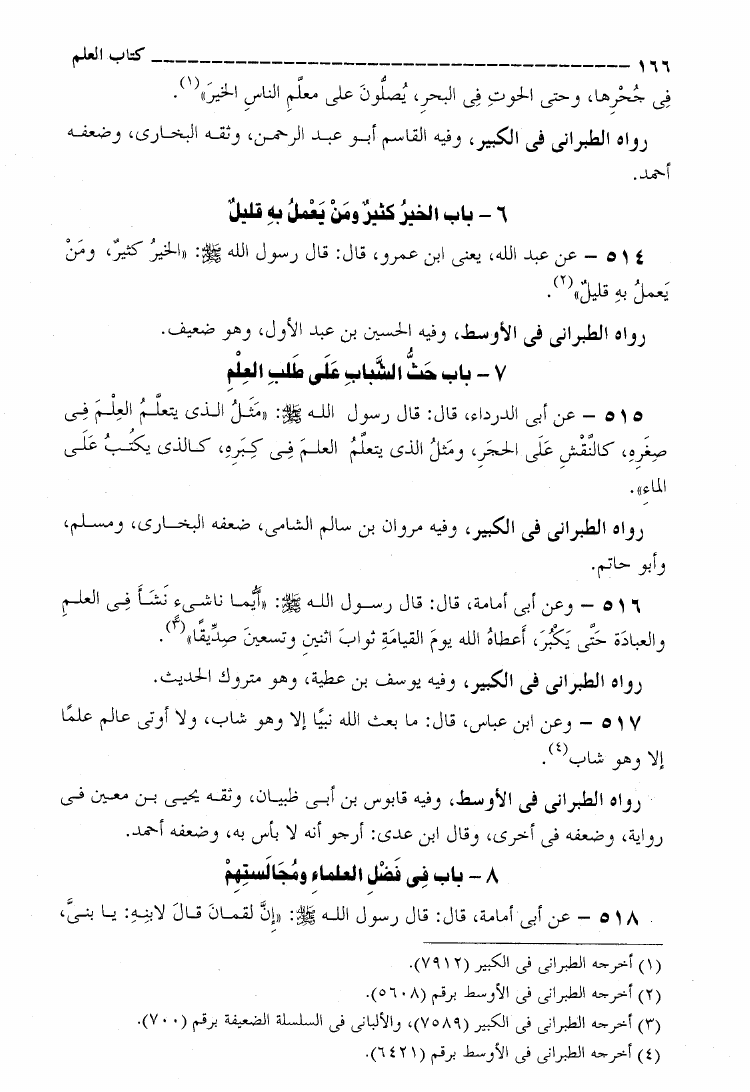 ١٦٦ ـــــــــــــــــــــــــــــــــــــــــــــــــــ كتاب العلم
فِى جُحْرِها، وحتى الحوتِ فِى البحرِ، يُصلُّونَ على معلِّمِ الناسِ الخيرَ»(١).
رواه الطبرانى فى الكبير، وفيه القاسم أبو عبد الرحمن، وثقه البخارى، وضعفه
أحمد.
٦ – باب الخيرُ كثيرٌ ومَنْ يَعْملُ بِهِ قليلٌ
٥١٤ – عن عبد الله، يعنى ابن عمرو، قال: قال رسول الله ﷺ: «الخيرُ كثيرٌ، ومَنْ
يَعملُ بهِ قليلٌ»(٢).
رواه الطبرانى فى الأوسط، وفيه الحسين بن عبد الأول، وهو ضعيف.
٧ – باب حَثُّ الشَّبابِ عَلَى طَلَبِ العِلْمِ
٥١٥ – عن أبى الدرداء، قال: قال رسول الله ﷺ: «مَثَلُ الذى يتعلَّمُ العِلْمَ فِى
صِغَرِهِ، كالنَّقْشِ عَلَى الحجَرِ، ومَثلُ الذى يتعلَّمُ العلمَ فِى كِبَرِهِ، كالذى يكتُبُ عَلَى
الماءِ».
رواه الطبرانى فى الكبير، وفيه مروان بن سالم الشامى، ضعفه البخارى، ومسلم،
وأبو حاتم.
٥١٦ – وعن أبى أمامة، قال: قال رسول الله ﷺ: «أَيُّما ناشىءٍ نَشَأَ فِى العلمِ
والعبادَة حَتَّى يَكْبُرَ، أَعطاهُ الله يومَ القيامَةِ ثوابَ اثنينِ وتسعينَ صِدِّيقًا»(٣).
رواه الطبرانى فى الكبير، وفيه يوسف بن عطية، وهو متروك الحديث.
٥١٧ – وعن ابن عباس، قال: ما بعث الله نبيًا إلا وهو شاب، ولا أوتى عالم علمًا
إلا وهو شاب(٤).
رواه الطبرانى فى الأوسط، وفيه قابوس بن أبى ظبيان، وثقه يحيى بن معين فى
رواية، وضعفه فى أخرى، وقال ابن عدى: أرجو أنه لا بأس به، وضعفه أحمد.
٨ – باب فِى فَضْلِ العلماءِ ومُجَالَستِهِمْ
٥١٨ – عن أبى أمامة، قال: قال رسول الله ﷺ: «إِنَّ لقمانَ قالَ لابنِهِ: يا بنىَّ،
(١) أخرجه الطبرانى فى الكبير (٧٩١٢).
(٢) أخرجه الطبرانى فى الأوسط برقم (٥٦٠٨).
(٣) أخرجه الطبرانى فى الكبير (٧٥٨٩)، والألبانى فى السلسلة الضعيفة برقم (٧٠٠).
(٤) أخرجه الطبرانى فى الأوسط برقم (٦٤٢١).